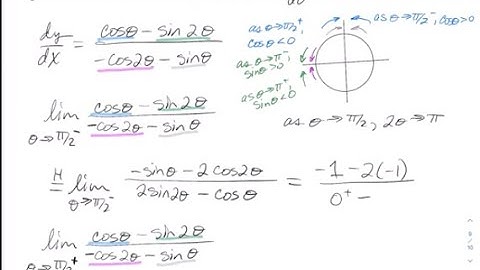 dy/dx = (cosθ - sin2θ)/(-cos2θ - sinθ)
as θ→π/2⁺, cosθ<0
as θ→π/2⁻, cosθ>0
as θ→π⁻, sinθ>0
as θ→π⁺, sinθ<0
lim θ→π/2⁻ (cosθ - sin2θ)/(-cos2θ - sinθ)
as θ→π/2, 2θ→π
H= lim θ→π/2⁻ (-sinθ - 2cos2θ)/(2sin2θ - cosθ) = (-1-2(-1))/(0⁺ -
lim θ→π/2⁺ (cosθ - sin2θ)/(-cos2θ - sinθ)